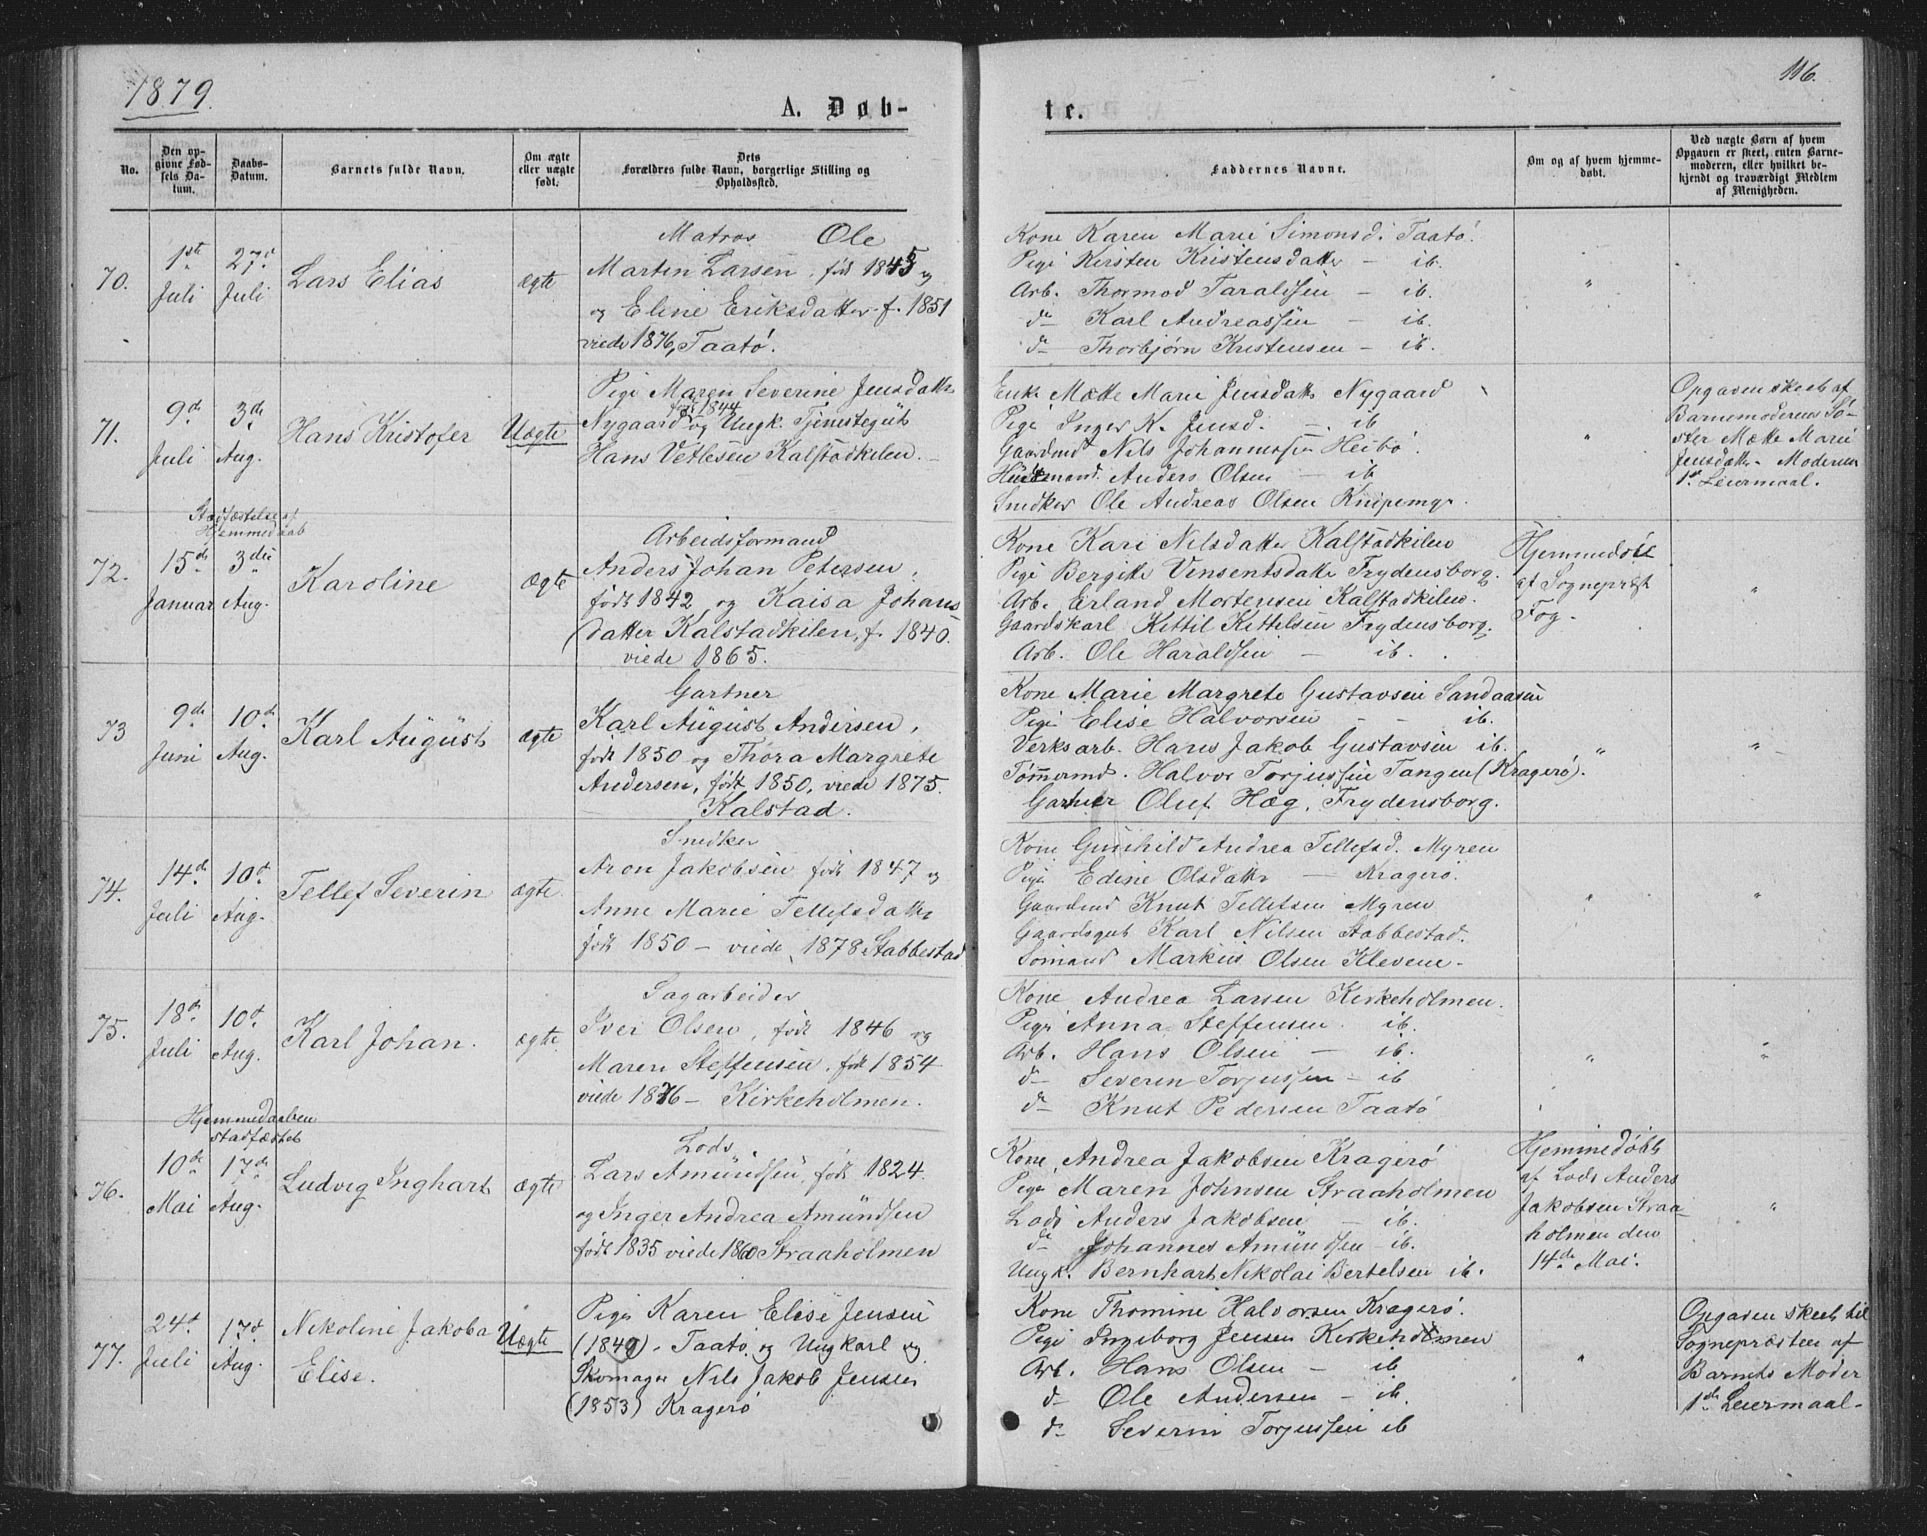 1879.
116.
A. Døb-
te.
No.
Den op-
givne Fød-
sels Da-
tum.
Daabs-
Datum.
Barnets fulde Navn.
Om ægte
eller uægte
født.
Dets
Forældres fulde Navn, borgerlige Stilling og
Opholdssted.
Faddernes Navne.
Om og af hvem hjemme-
døbt.
Ved uægte Børn af hvem
Opgaven er skeet, enten Barne-
moderen, eller hvilket be-
kjendt og troværdigt Medlem
af Menigheden.
70.
1ste
Juli
27d
Juli
Lars Elias
ægte
Matros Ole
Martin Larsen, født 1845 og
og Eline Eriksdatter f. 1851
viede 1876, Taatø.
Kone Karen Marie Simonsd. Taatø.
Pige Kirsten Kristensdatter — ib.
Arb. Thormod Taraldsen — ib.
d— Karl Andreassen — ib.
d— Thorbjørn Kristensen — ib.
"
71.
9de
Juli
3de
Aug.
Hans Kristofer
Uægte
Pige Maren Severine Jensdatter
født 1844
Nygaard og Ungk. Tjenstegut
Hans Vetlesen Kalstadkilen.
Enke Mætte Marie Jensdatter Nygaard
Pige Inger K. Jensd. — ib
Gaardmd Nils Johannessen Heibø.
Husmand. Anders Olsen — ib
Snedker Ole Andreas Olsen Knipemyr.
"
Opgaven skeet af
Barnemoderens Sø-
ster Mætte Marie
Jensdatter. Moderens
1ste Leiermaal.
Stadfæstelse af
Hjemmedaab
72.
15de
Januar
3die
Aug.
Karoline
ægte
Arbeidsformand
Anders Johan Petersen,
født 1842 og Kaisa Johans
datter Kalstadkilen, f. 1840.
viede 1865.
Kone Kari Nilsdatter Kalstadkilen
Pige Bergitte Vinsentsdatter Frydensborg.
Arb. Erland Mortensen Kalstadkilen.
Gaardskarl Kittil Kittilsen Frydensborg.
Arb. Ole Haraldsen — ib.
Hjemmedøbt
af Sognepræst
Fog.
"
73
9de
Juni
10de
Aug.
Karl August
ægte
Gartner
Karl August Andersen,
født 1850 og Thora Margrete
Andersen, født 1850, viede 1875.
Kalstad.
Kone Marie Margrete Gustavsen Sandaasen
Pige Elise Halvorsen — — ib.
Verksarb. Hans Jakob Gustavsen ib.
Tømmermd. Halvor Torjussen Tangen (Kragerø).
Gartner Oluf Hæg, Frydensborg.
"
"
74.
14de
Juli
10d
Aug.
Tellef Severin
ægte
Snedker
Aron Jakobsen født 1847 og
Anne Marie Tellefsdatter
født 1850 — viede 1878 Stabbestad
Kone Gunhild Andrea Tellefsd. Myren
Pige Edine Olsdatter — Kragerø.
Gaardmd Knut Tellefsen Myren
Gaardsgut Karl Nilsen Stabbestad.
Sømand Markus Olsen Klevene.
"
"
75.
18de
Juli
10d
Aug.
Karl Johan.
ægte.
Sagarbeider
Iver Olsen, født 1846 og
Maren Steffensen, født 1854
viede 1876 — Kirkeholmen.
Kone Andrea Larsen Kirkeholmen.
Pige Anna Steffensen ib.
Arb. Hans Olsen — ib.
d— Severin Torjussen — ib
d— Knut Pedersen Taatø
"
"
Hjemmedaaben
stadfæstet
76.
10de
Mai
17de
Aug.
Ludvig Inghart
ægte
Lods,
Lars Amundsen, født 1824.
og Inger Andrea Amundsen
født 1835 viede 1860 Straaholmen
Kone Andrea Jakobsen Kragerø
Pige Maren Johnsen Straaholmen
Lods Anders Jakobsen — ib.
d— Johannes Amundsen — ib.
Ungk. Bernhart Nikolai Bertelsen ib.
Hjemmedøbt
af Lods Anders
Jakobsen Straa-
holmen den
14de Mai.
"
77.
24d
Juli
17d
Aug.
Nikoline Jakoba
Elise.
Uægte
Pige Karen Elise Jensen
(1849). Taatø. og Ungkarl og
Skomager Nils Jakob Jensen
(1853) Kragerø
Kone Thomine Halvorsen Kragerø.
Pige Ingeborg Jensen Kirkeholmen
Arb. Hans Olsen — ib
d— Ole Andersen — ib.
d— Severin Torjussen ib
"
Opgaven skeet til
Sognepræsten af
Barnets Moder
1ste Leiermaal.